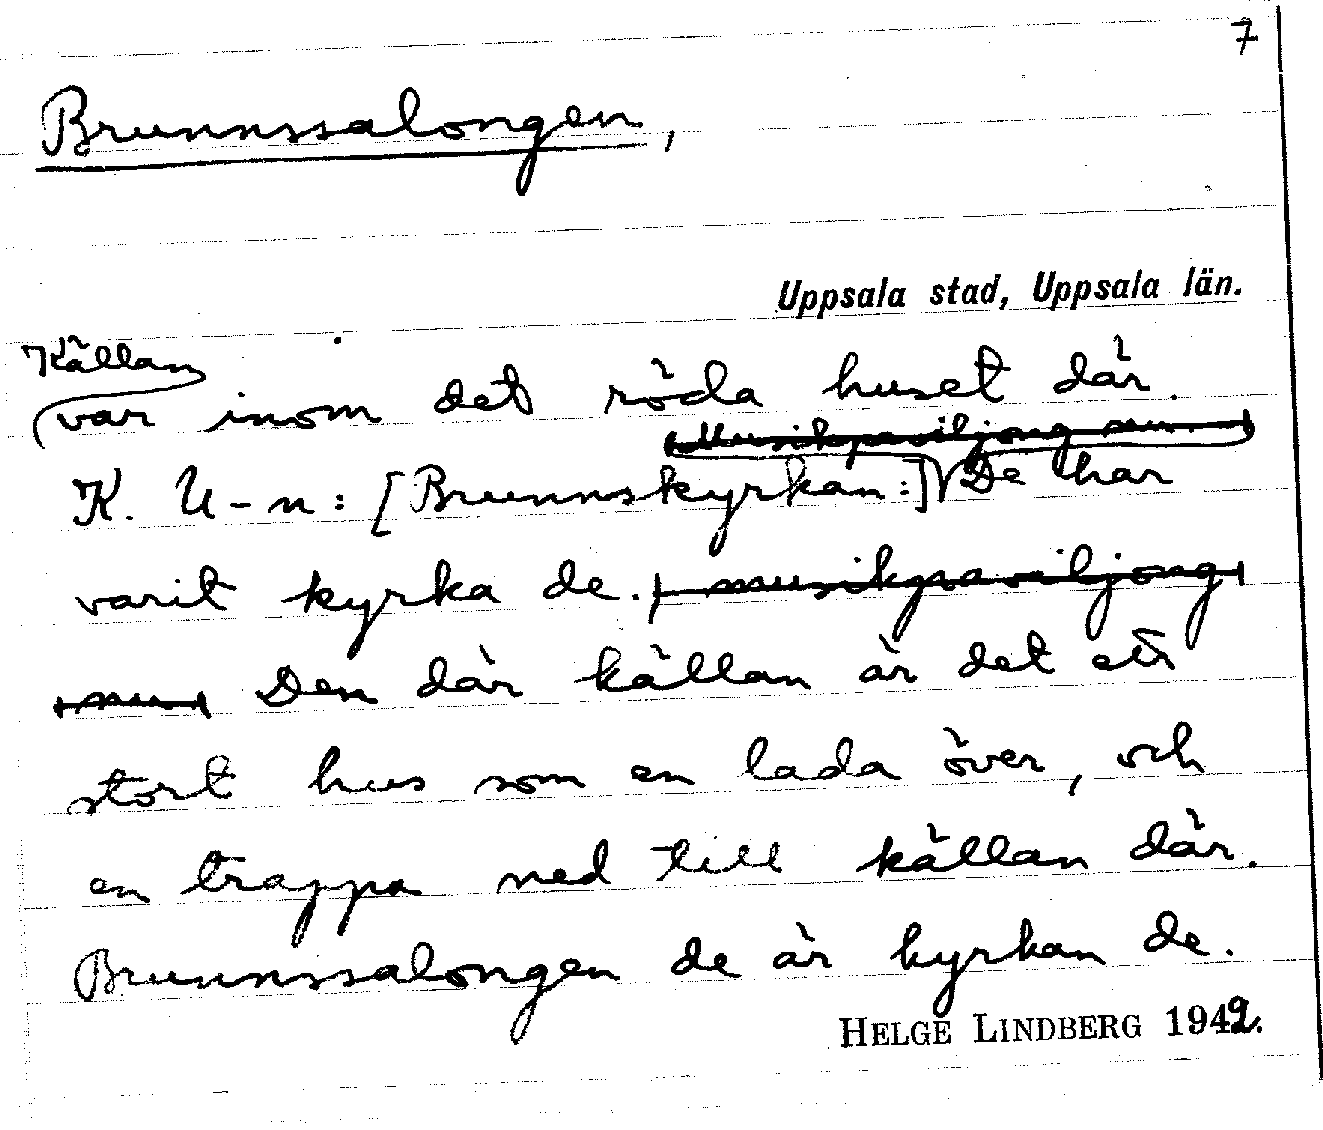 7
Brunnssalongen,
Uppsala stad, Uppsala län.
Källan
var inom det röda huset där.
Musikpaviljong nu.
K. U-n: [Brunnskyrkan:] De har
varit kyrka de. musikpaviljong
nu Den där källan är det ett
stort hus som en lada över, och
en trappa ned till källan där.
Brunnssalongen de är kyrkan de.
HELGE LINDBERG 1942.